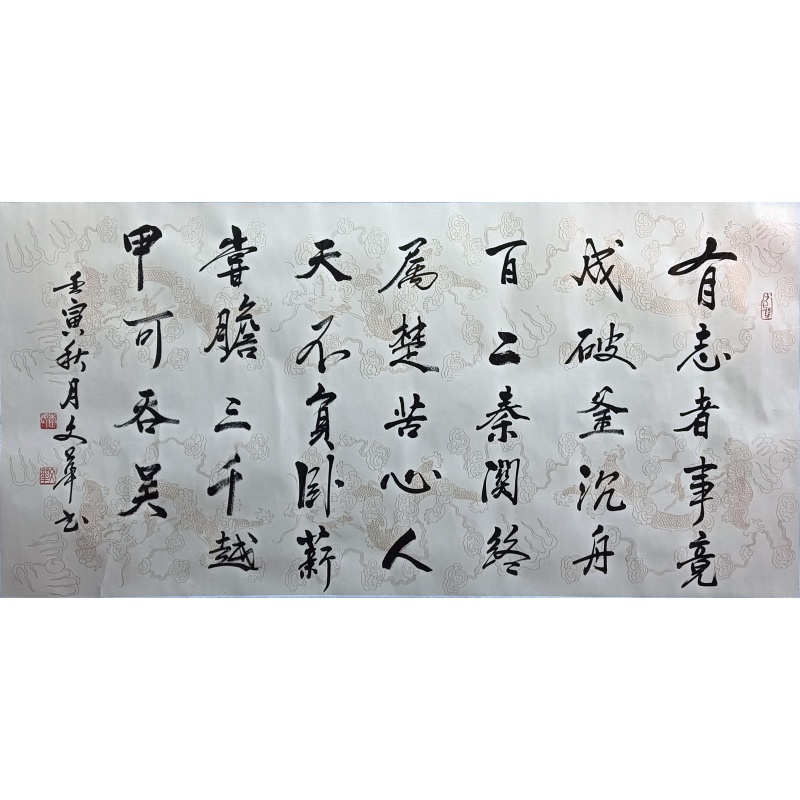 有志者事竟
成破釜沉舟
百二秦関終
属楚苦心人
天不負卧薪
嘗膽三千越
甲可吞吴
壬寅秋月文華书